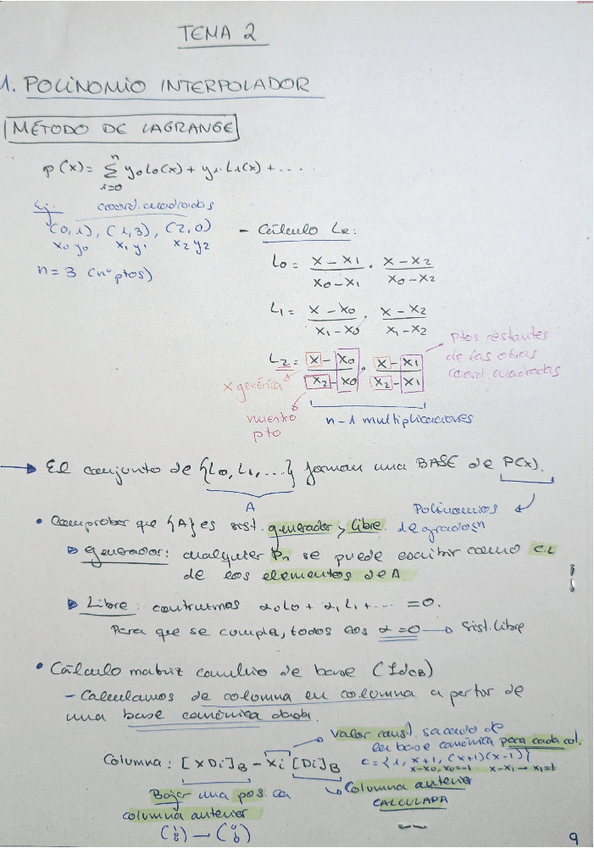 TEMA 2
1. POLINOMIO INTERPOLADOR
MÉTODO DE LAGRANGE
p(x) = Σ y₀L₀(x) + y₁·L₁(x) + ....
n
i=0
Ej. coord. cuadradas
(0,1), (1,3), (2,0)
x₀ y₀ x₁ y₁ x₂ y₂
n = 3 (nº ptos)
- Cálculo Lₖ:
L₀ = x - x₁ / x₀ - x₁ · x - x₂ / x₀ - x₂
L₁ = x - x₀ / x₁ - x₀ · x - x₂ / x₁ - x₂
L₂ = x - x₀ / x₂ - x₀ · x - x₁ / x₂ - x₁
ptos restantes
de las otras
coord cuadradas
x genérica
nuestro
pto
n-1 multiplicaciones
→ El conjunto de {L₀, L₁, ...} forman una BASE de P(x).
A
Polinomios
de grado n
• Comprobar que {A} es sist. generador y libre.
▸ generador: cualquier Pn se puede escribir como c.L
de los elementos de A.
▸ Libre: construimos α₀L₀ + α₁L₁ + ... = 0.
Para que se cumpla, todos los α = 0 → Sist. libre
• Cálculo matriz cambio de base (IdCB)
- Calculamos de columna en columna a partir de
una base canónica dada.
Valor const. sacado de
la base canónica para cada col.
Columna: [XDi]B - xi [Di]B
C = {1, x+1, (x+1)(x-1)}
x-x₀, x₀=-1 x-x₁ → x₁=1
Bajar una pos. la
columna anterior
Columna anterior
CALCULADA
9